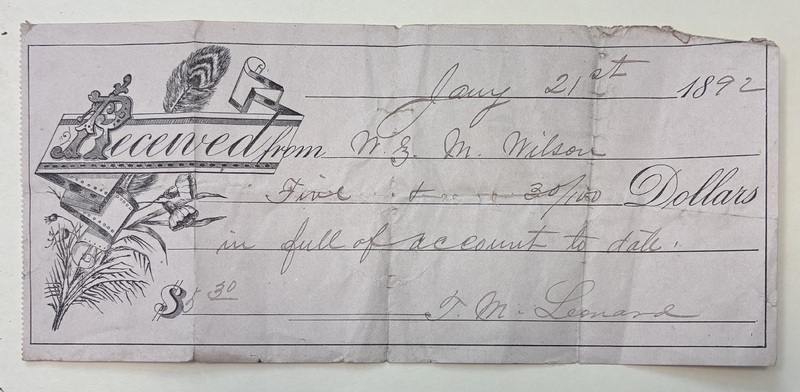 Jany 21st 1892
Received from W. G. M. Wilson
Five & 30/100 Dollars
in full of account to date.
$5 30
T. M. Leonard